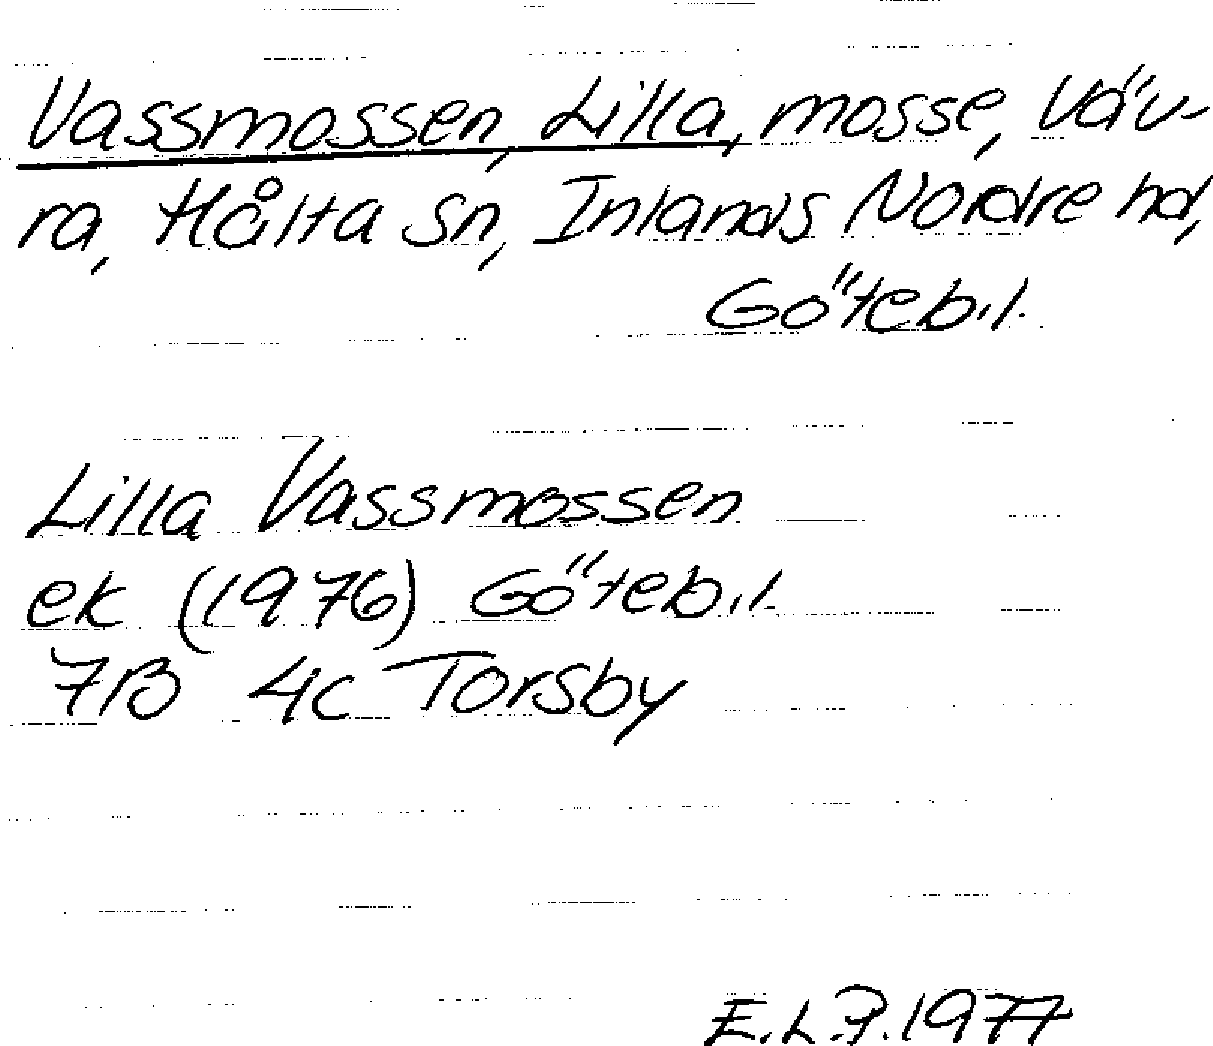 Vassmossen, Lilla, mosse, Väv-
ra, Hålta sn, Inlands Nordre hd,
Göteb.l.
Lilla Vassmossen
ek (1976) Göteb.l.
7B 4c Torsby
E.L.P. 1977